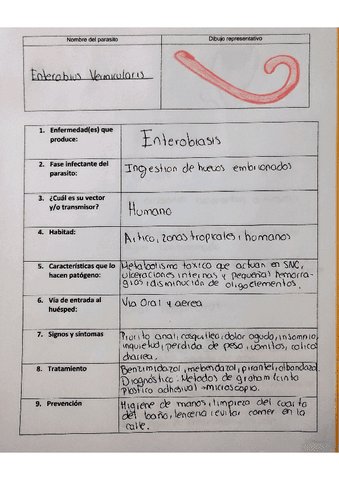 Nombre del parasito
Dibujo representativo
Enterobius Vermicularis
1. Enfermedad(es) que produce:
Enterobiasis
2. Fase infectante del parasito:
Ingestion de huevos embrionados
3. ¿Cuál es su vector y/o transmisor?
Humano
4. Habitad:
Artico, zonas tropicales, humanos
5. Características que lo hacen patógeno:
Metabolismo toxico que actuan en SNC,
ulceraciones internas y pequeñas hemorra-
gias, disminución de oligoelementos.
6. Via de entrada al huésped:
Via Oral y aerea
7. Signos y síntomas
Prurito anal, cosquilleo, dolor agudo, insomnio,
inquietud, perdida de peso, vomitos, colicos
diarrea.
8. Tratamiento
Benzimidazol, mebendazol, pirantel, albendazol.
Diagnostico: Metodos de graham (cinta
plastica adhesiva) -microscopio.
9. Prevención
Higiene de manos, limpieza del cuarto
del baño, lenceria, evitar comer en la
calle.